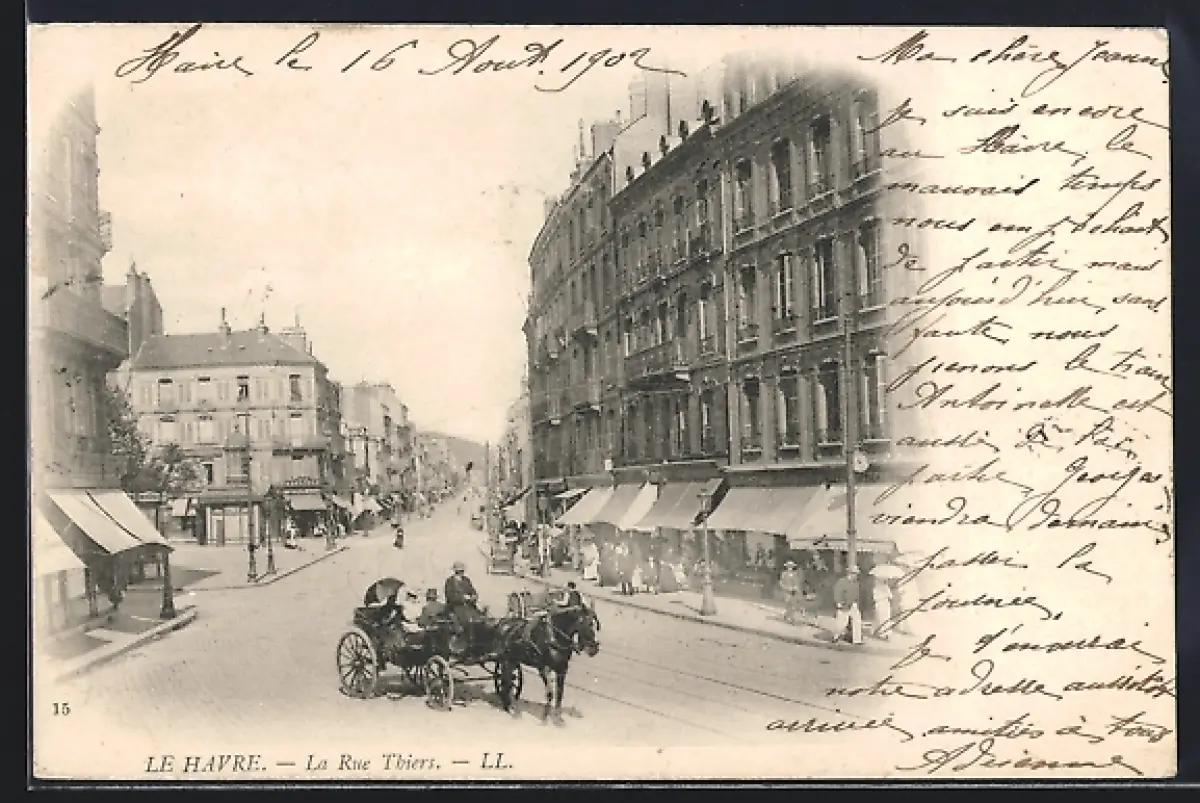 Havre le 16 Août 1902
Ma chère Jeanne
Je suis encore
au Hâvre, le
mauvais temps
nous empêchait
de partir, mais
aujourd'hui, sans
faute nous
prenons le train
Antoinette est
aussi
Georges
viendra demain
passer la
journée,
Je t'enverrai
notre adresse aussitôt
arrivée amitiés à tous
Adrienne
15
LE HAVRE. — La Rue Thiers. — LL.